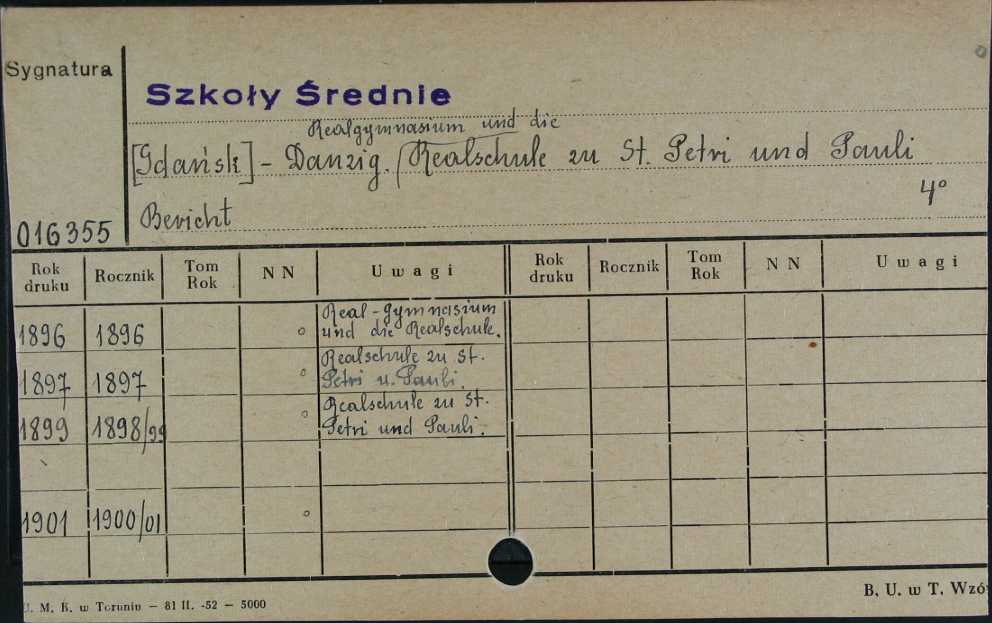 Sygnatura
Szkoły Średnie
Realgymnasium und die
[Gdańsk] - Danzig. Realschule zu St. Petri und Pauli
4°
Bericht
016355
Rok druku Rocznik Tom Rok N N Uwagi Rok druku Rocznik Tom Rok N N Uwagi
1896 1896 ° Real-gymnasium und die Realschule.
1897 1897 ° Realschule zu St. Petri u. Pauli.
1899 1898/99 ° Realschule zu St. Petri und Pauli.
1901 1900/01 °
U. M. K. w Toruniu — 81 II. -52 — 5000
B. U. w T. Wzó